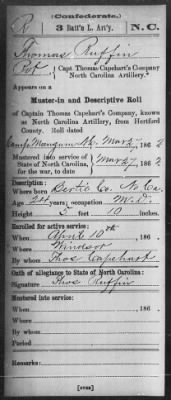 (Confederate.)
R 3 Batt'n L. Art'y. N. C.
Thomas Ruffin
Pvt, Capt Thomas Capehart's Company
North Carolina Artillery.*
Appears on a
Muster-in and Descriptive Roll
of Captain Thomas Capehart's Company, known
as North Carolina Artillery, from Hertford
County. Roll dated
Camp Mangum N.C. Mar 27, 1862
Mustered into service of
State of North Carolina,
for the war, to date
Mar 27, 1862
Description:
Where born Bertie Co. No. Ca.
Age 24 years; occupation M.D.
Height 5 feet 10 inches.
Enrolled for active service:
When April 10th, 186
Where Windsor
By whom Thos Capehart
Oath of allegiance to State of North Carolina:
Signature Thos Ruffin
Mustered into service:
When , 186 .
Where
By whom
Period
Remarks: